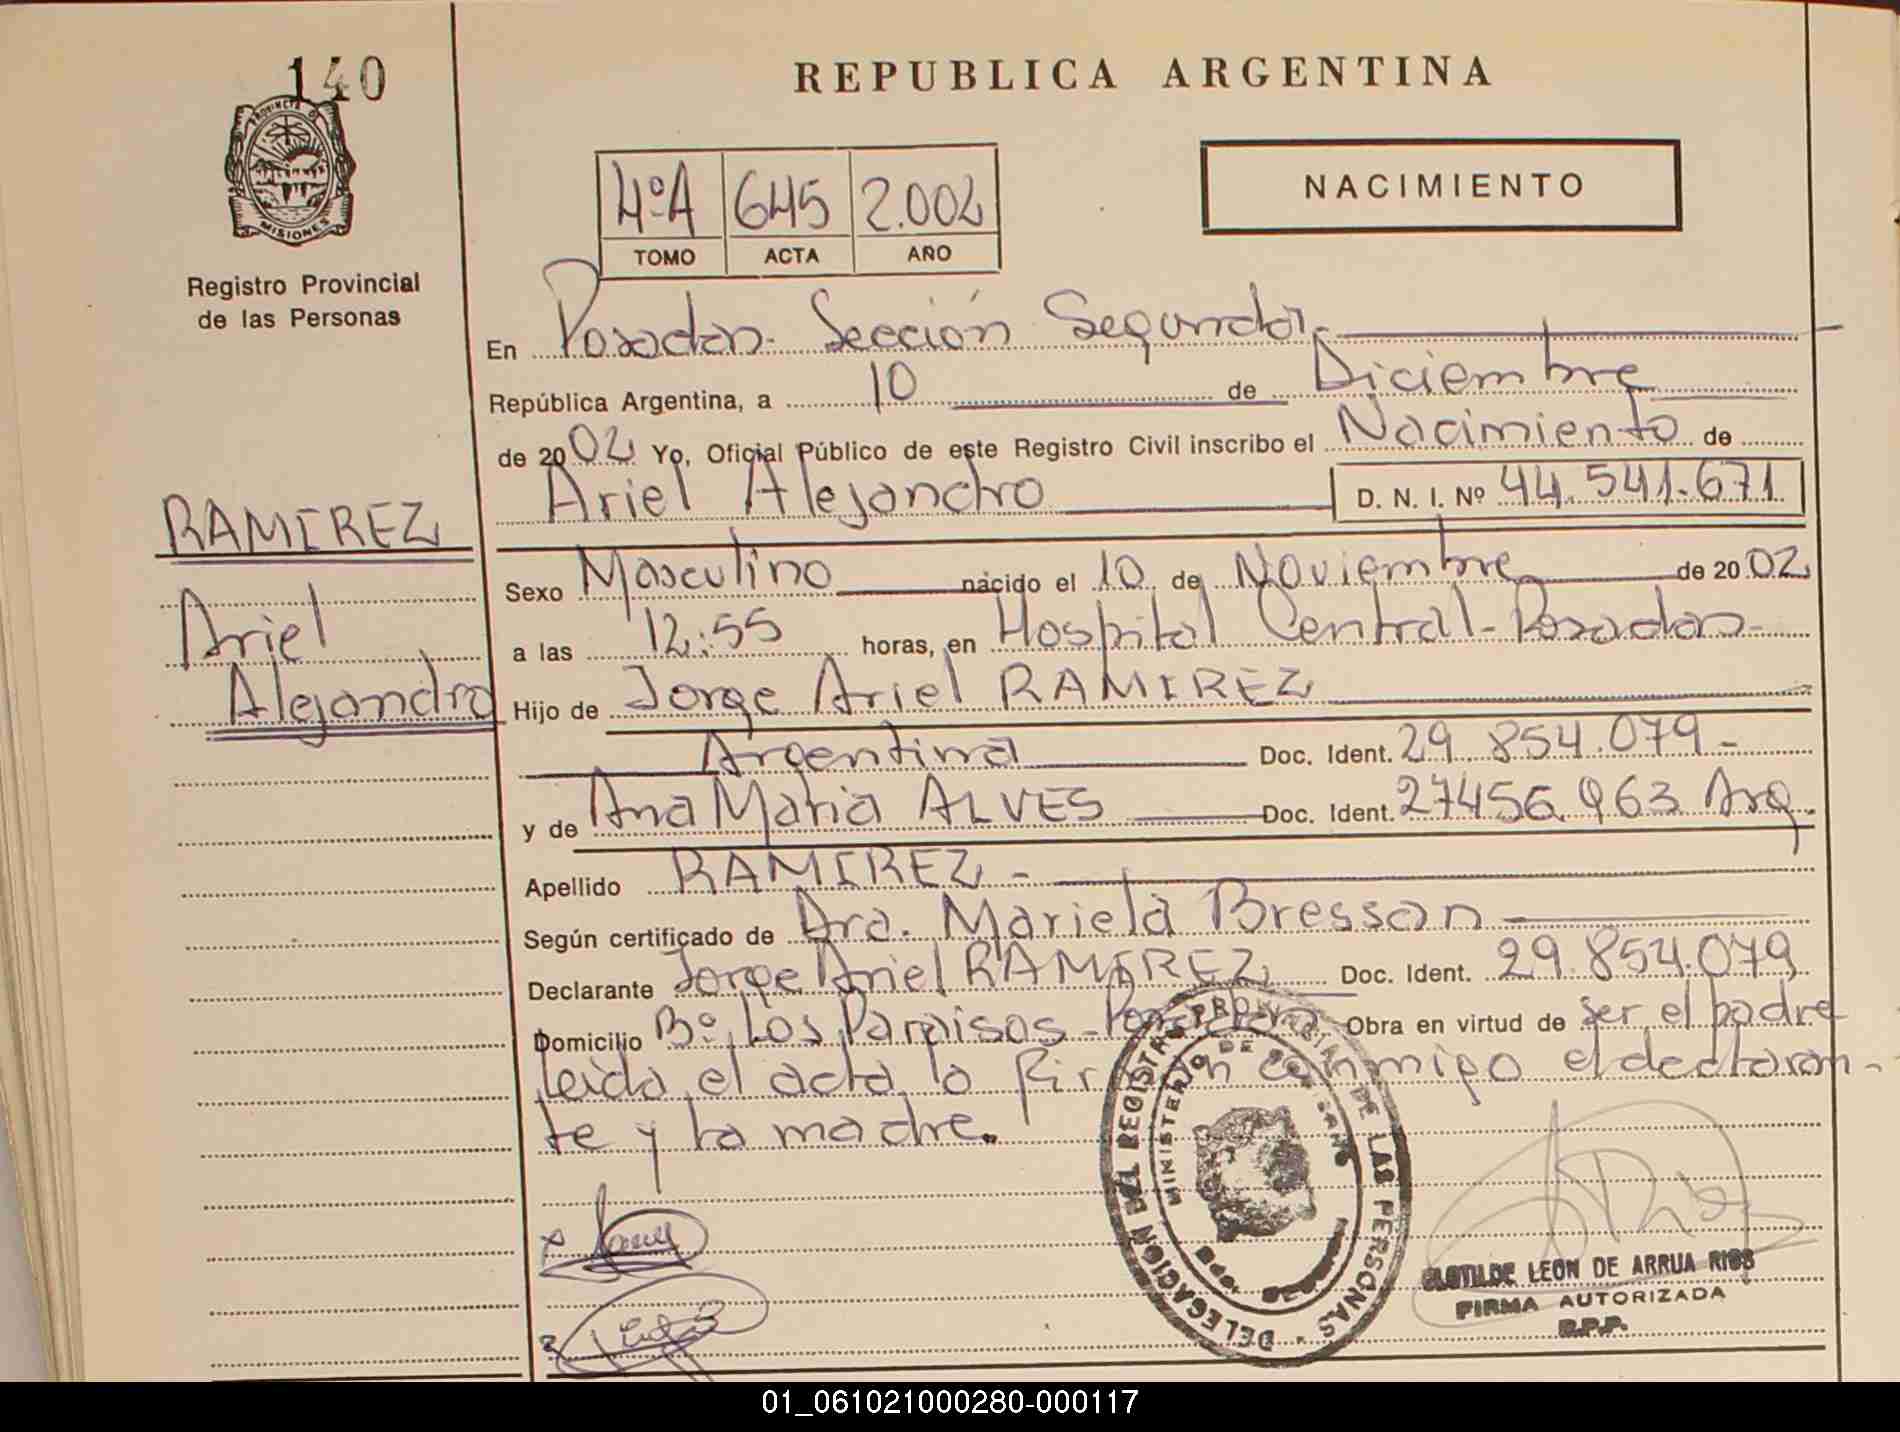 140
REPUBLICA ARGENTINA
PROVINCIA DE
MISIONES
Registro Provincial
de las Personas
4ºA 645 2.002
TOMO ACTA AÑO
NACIMIENTO
En Posadas- Sección Segunda.
República Argentina, a 10 de Diciembre
de 2002 Yo, Oficial Público de este Registro Civil inscribo el Nacimiento de
Ariel Alejandro D. N. I. Nº 44.541.671
RAMIREZ
Ariel
Alejandro
Sexo Masculino nacido el 10 de Noviembre de 2002
a las 12:55 horas, en Hospital Central-Posadas-
Hijo de Jorge Ariel RAMIREZ
Argentina Doc. Ident. 29.854.079-
y de Ana Maria ALVES Doc. Ident. 27456.963 Arg.
Apellido RAMIREZ-
Según certificado de Dra. Mariela Bressan-
Declarante Jorge Ariel RAMIREZ Doc. Ident. 29.854.079
Domicilio Bº Los Paraisos-Posadas Obra en virtud de ser el padre
leida el acta la firman conmigo el declaran-
te y la madre.
DELEGACION DEL REGISTRO PROVINCIAL DE LAS PERSONAS
MINISTERIO DE
CLOTILDE LEON DE ARRUA RIOS
FIRMA AUTORIZADA
R.P.P.
01_061021000280-000117